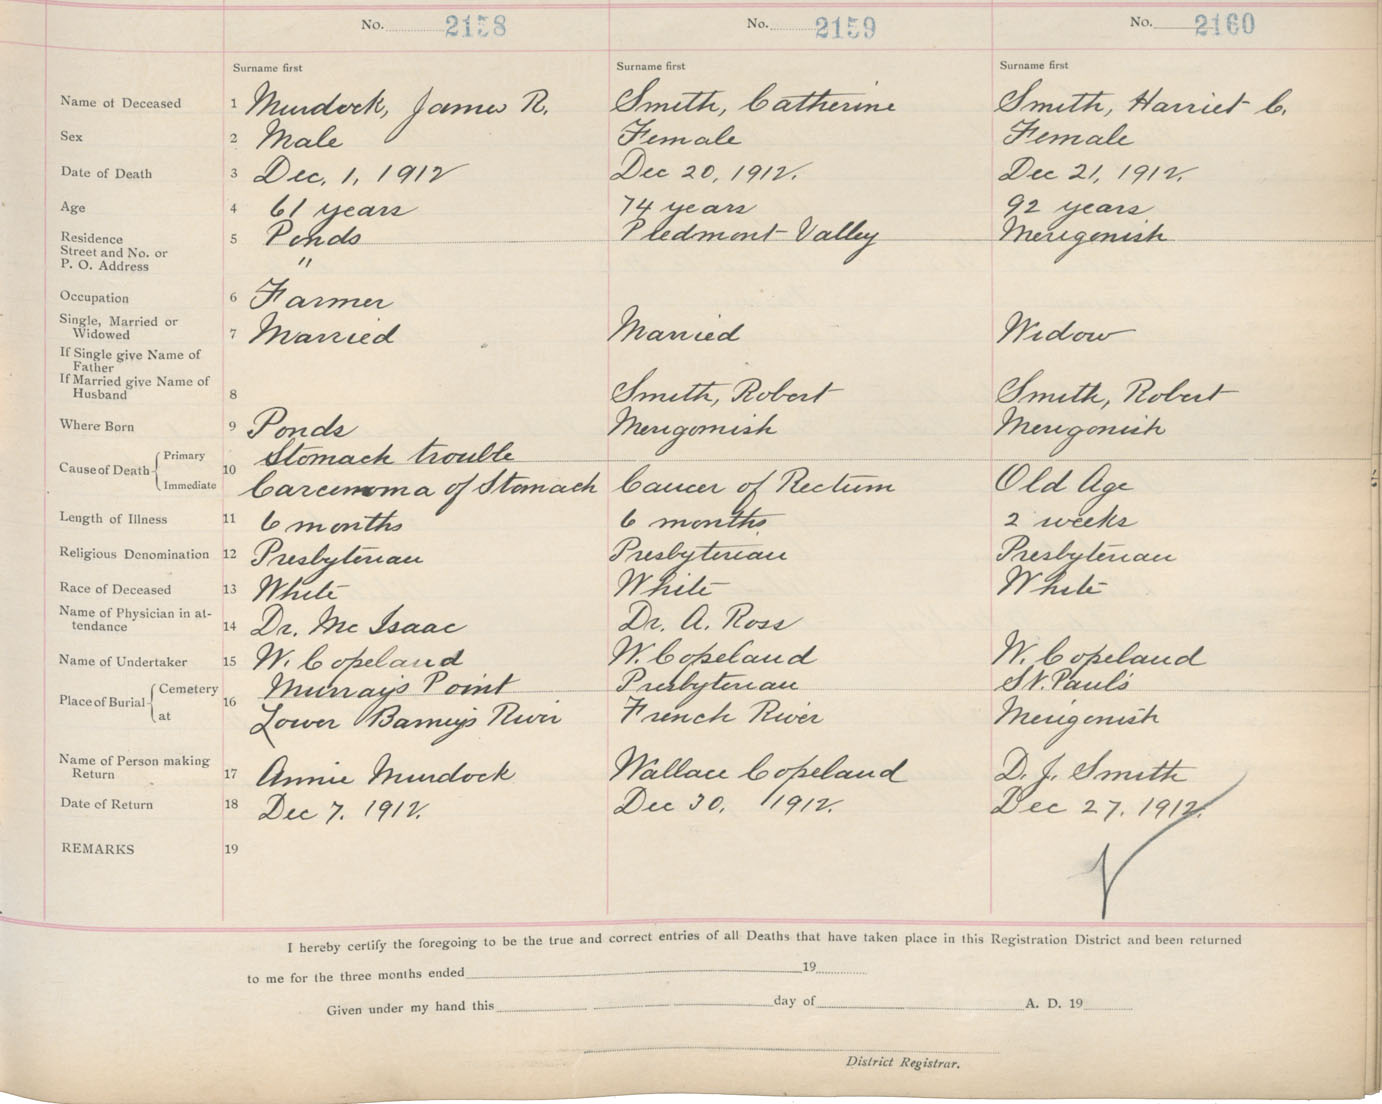 No. 2158 No. 2159 No. 2160
Surname first Surname first Surname first
Name of Deceased 1 Murdock, James R. Smith, Catherine Smith, Harriet C.
Sex 2 Male Female Female
Date of Death 3 Dec. 1, 1912 Dec 20, 1912. Dec 21, 1912.
Age 4 61 years 74 years 92 years
Residence 5 Ponds Piedmont Valley Merigonish
Street and No. or
P. O. Address "
Occupation 6 Farmer
Single, Married or
Widowed 7 Married Married Widow
If Single give Name of
Father
If Married give Name of
Husband 8 Smith, Robert Smith, Robert
Where Born 9 Ponds Merigomish Merigonish
Cause of Death Primary 10 Stomach trouble
Immediate Carcenoma of Stomach Cancer of Rectum Old Age
Length of Illness 11 6 months 6 months 2 weeks
Religious Denomination 12 Presbyterian Presbyterian Presbyterian
Race of Deceased 13 White White White
Name of Physician in at-
tendance 14 Dr. Mc Isaac Dr. A. Ross
Name of Undertaker 15 W. Copeland W. Copeland W. Copeland
Place of Burial Cemetery 16 Murray's Point Presbyterian St. Paul's
at Lower Barney's River French River Merigonish
Name of Person making
Return 17 Annie Murdock Wallace Copeland D. J. Smith
Date of Return 18 Dec 7. 1912. Dec 30, 1912. Dec 27. 1912.
REMARKS 19
I hereby certify the foregoing to be the true and correct entries of all Deaths that have taken place in this Registration District and been returned
to me for the three months ended 19
Given under my hand this day of A. D. 19
District Registrar.